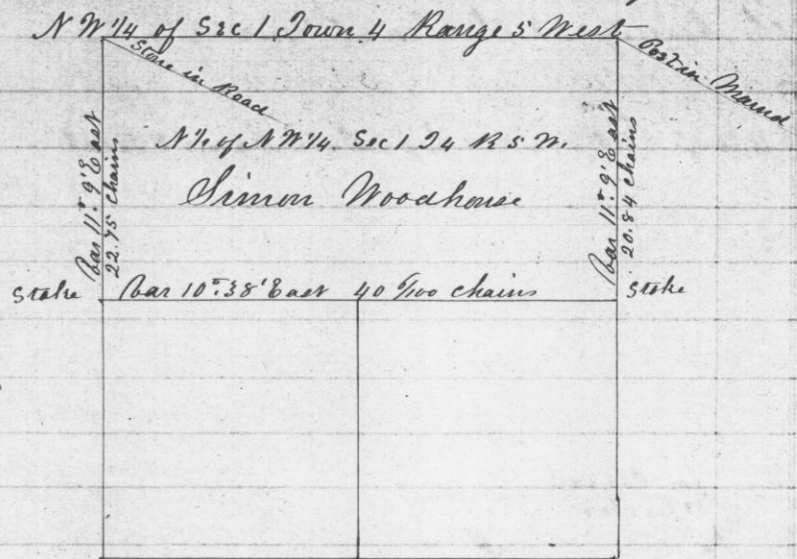 N W 1/4 of Sec 1 Town 4 Range 5 West
Stone in Road
Post in Mound
N 1/2 of N W 1/4 Sec 1 T 4 R 5 W.
Simon Woodhouse
Var 11° 9' East
22.75 chains
Var 11° 9' East
20.84 chains
Stake
Var 10° 38' East 40 9/100 chains
Stake